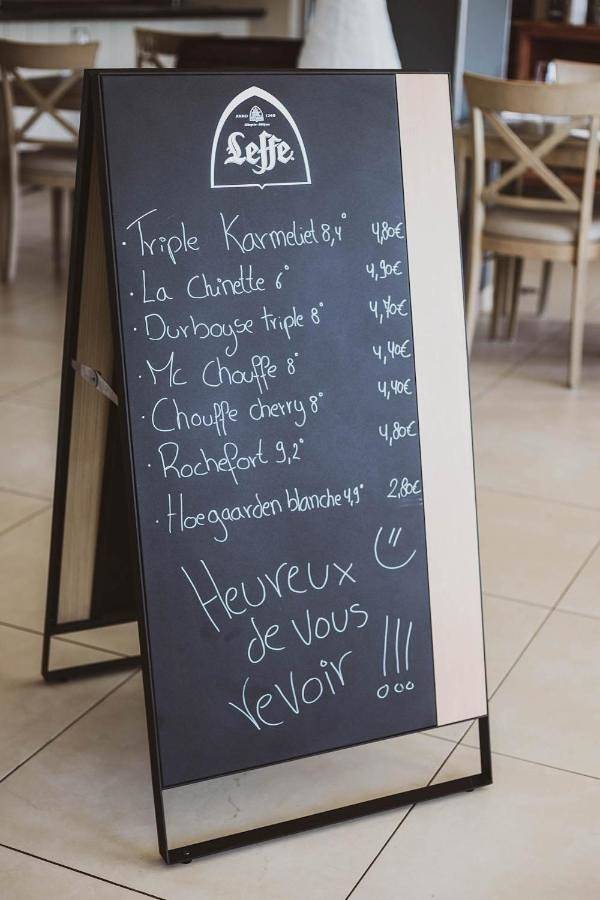 ANNO 1240
Leffe.
· Triple Karmeliet 8,4° 4,80€
· La Chinette 6° 4,90€
· Durboyse triple 8° 4,70€
· Mc Chouffe 8° 4,40€
· Chouffe cherry 8° 4,40€
· Rochefort 9,2° 4,80€
· Hoegaarden blanche 4,9° 2,80€
Heureux
de vous
revoir !!!